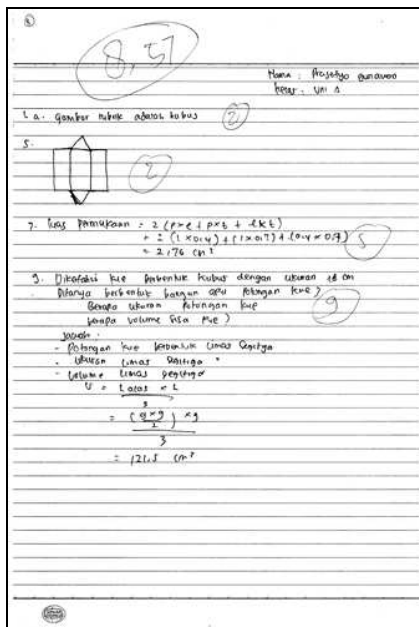 8,57
Nama : Prasetyo Gunawan
kelas : VIII A
1. a. gambar rubik adalah kubus
2
5.
2
7. luas permukaan = 2 (p×l + p×t + l×t)
= (1×0,4) + (1×0,7) + (0,4×0,7)
= 2,76 cm²
5
9. Diketahui kue berbentuk kubus dengan ukuran 18 cm
Ditanya berbentuk bangun apa potongan kue?
Berapa ukuran potongan kue
berapa volume sisa kue?
9
Jawab :
- Potongan kue berbentuk limas segitiga
- Ukuran limas segitiga
- Volume limas segitiga
V = L alas × t
3
= (9×9
2) × 9
3
= 121,5 cm³